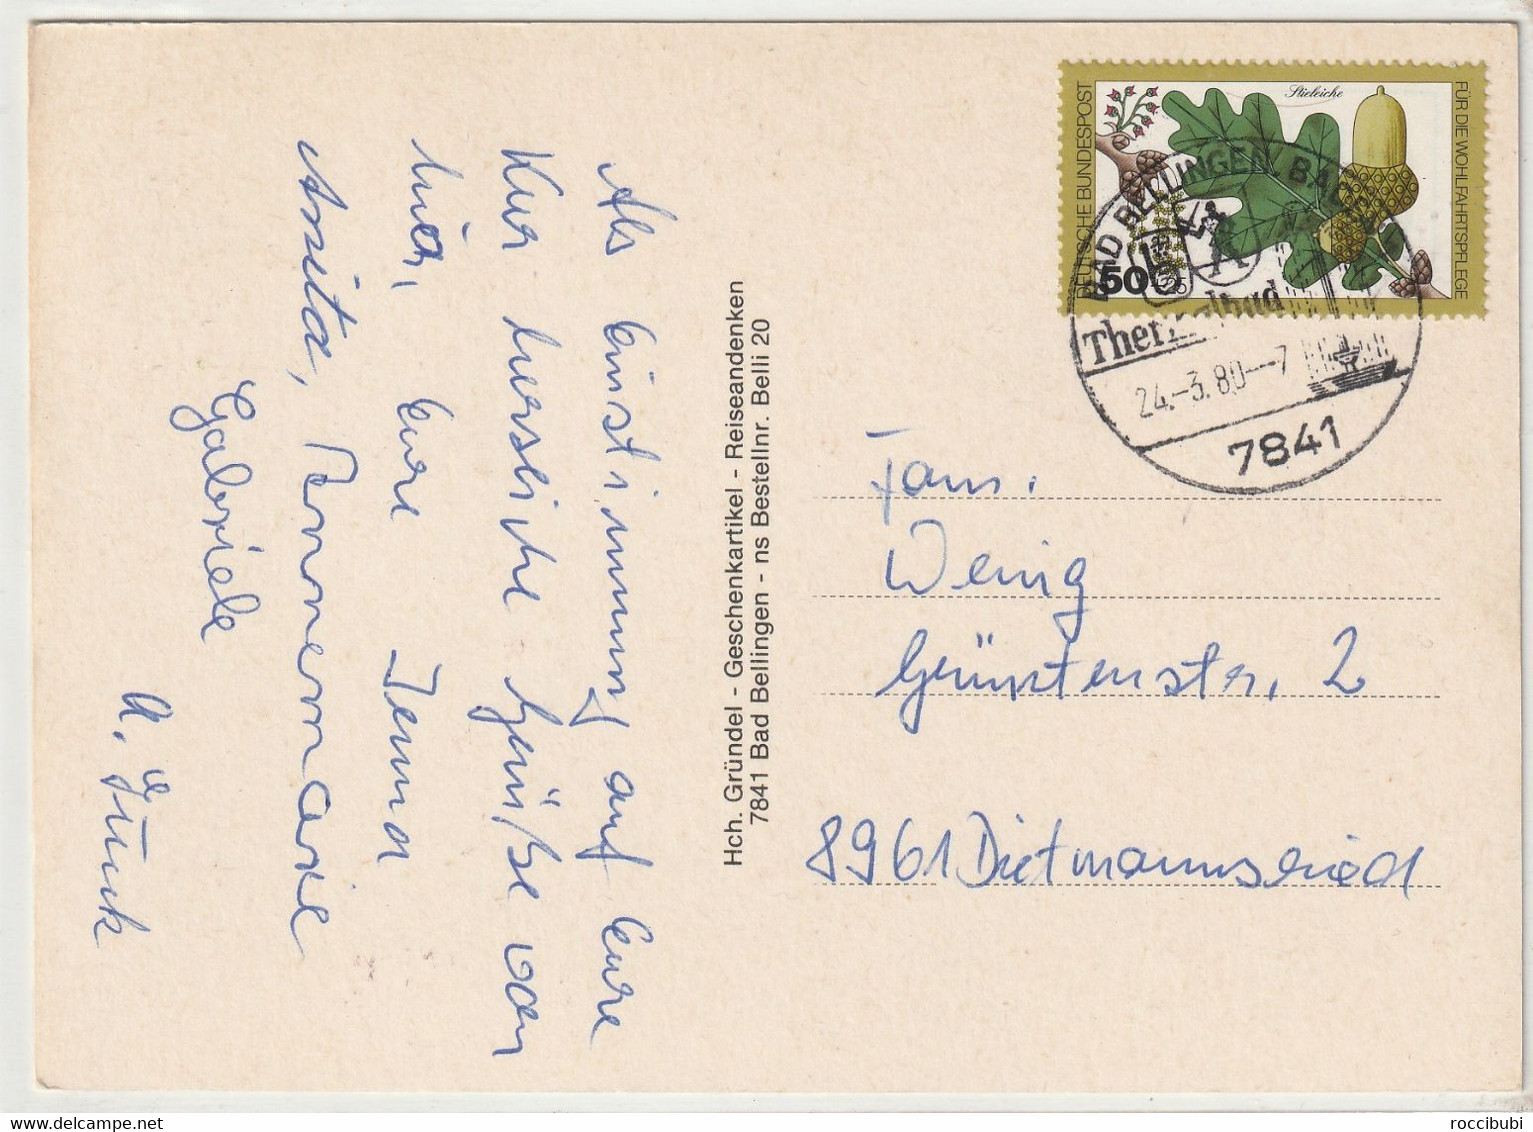 Als Einstimmung auf Eure
Kur herzliche Grüße von
hier, Eure Irma
Anita, Annemarie
Gabriele
Hch. Gründel - Geschenkartikel - Reiseandenken
7841 Bad Bellingen - ns Bestellnr. Belli 20
DEUTSCHE BUNDESPOST
Stieleiche
FÜR DIE WOHLFAHRTSPFLEGE
50
+25
BAD BELLINGEN, BAD
Thermalbad
24.-3.80--7
7841
Fam.
Wenig
Grüntenstr. 2
8961 Dietmannsried
roccibubi